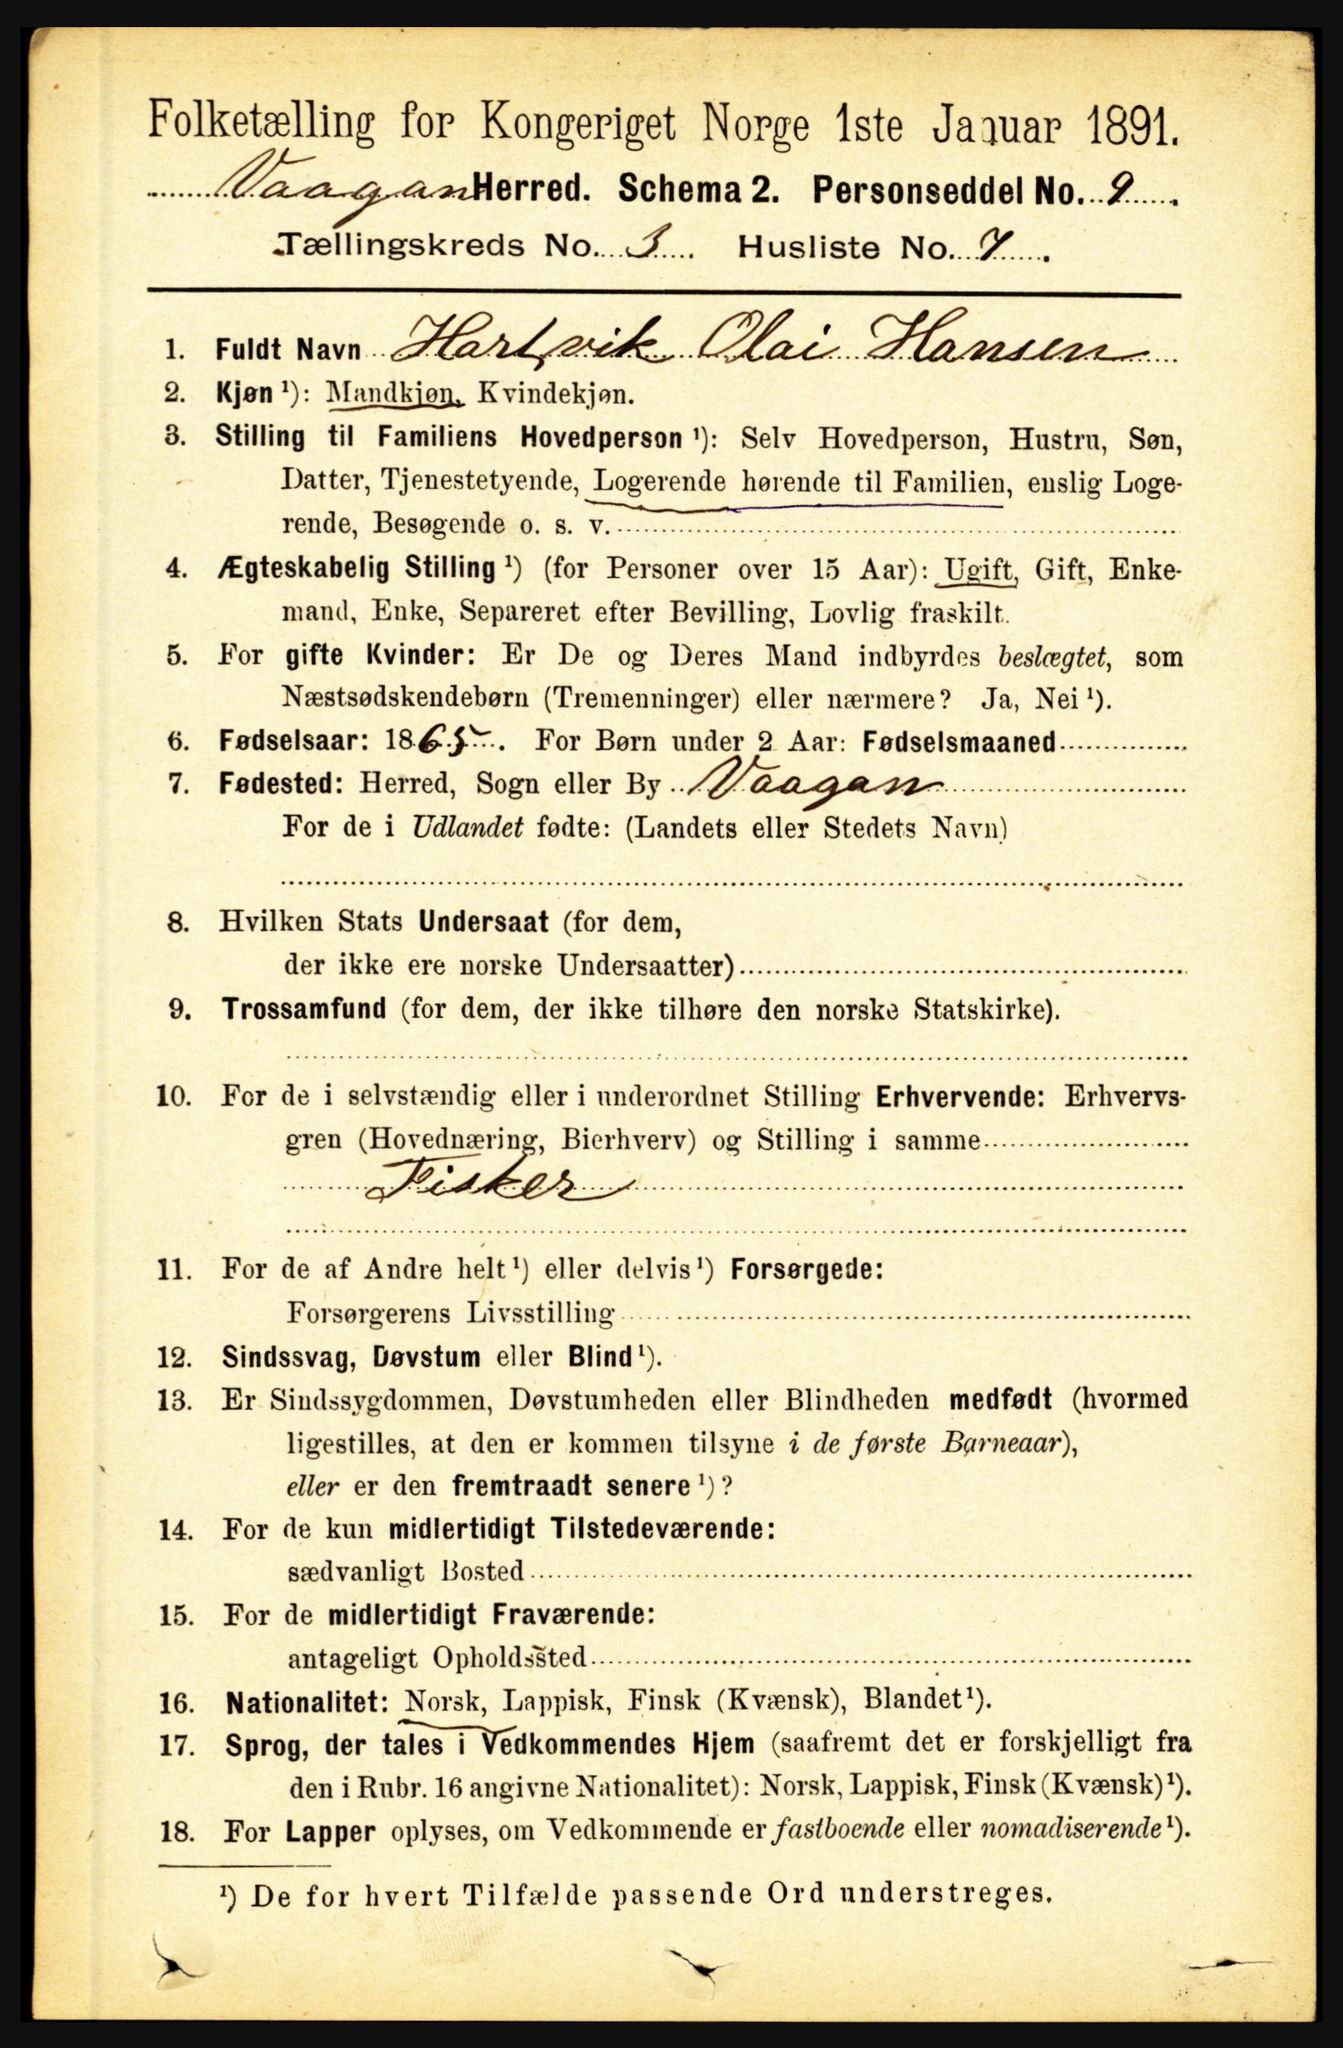 Folketælling for Kongeriget Norge 1ste Januar 1891.
Vaagan Herred. Schema 2. Personseddel No. 9.
Tællingskreds No. 3. Husliste No. 7.
1. Fuldt Navn Hartvik Olai Hansen
2. Kjøn ¹): Mandkjøn, Kvindekjøn.
3. Stilling til Familiens Hovedperson ¹): Selv Hovedperson, Hustru, Søn,
Datter, Tjenestetyende, Logerende hørende til Familien, enslig Loge-
rende, Besøgende o. s. v.
4. Ægteskabelig Stilling ¹) (for Personer over 15 Aar): Ugift, Gift, Enke-
mand, Enke, Separeret efter Bevilling, Lovlig fraskilt.
5. For gifte Kvinder: Er De og Deres Mand indbyrdes beslægtet, som
Næstsødskendebørn (Tremenninger) eller nærmere? Ja, Nei ¹).
6. Fødselsaar: 1865. For Børn under 2 Aar: Fødselsmaaned
7. Fødested: Herred, Sogn eller By Vaagan
For de i Udlandet fødte: (Landets eller Stedets Navn)
8. Hvilken Stats Undersaat (for dem,
der ikke ere norske Undersaatter)
9. Trossamfund (for dem, der ikke tilhøre den norske Statskirke).
10. For de i selvstændig eller i underordnet Stilling Erhvervende: Erhvervs-
gren (Hovednæring, Bierhverv) og Stilling i samme
Fisker
11. For de af Andre helt ¹) eller delvis ¹) Forsørgede:
Forsørgerens Livsstilling
12. Sindssvag, Døvstum eller Blind ¹).
13. Er Sindssygdommen, Døvstumheden eller Blindheden medfødt (hvormed
ligestilles, at den er kommen tilsyne i de første Barneaar),
eller er den fremtraadt senere ¹)?
14. For de kun midlertidigt Tilstedeværende:
sædvanligt Bosted
15. For de midlertidigt Fraværende:
antageligt Opholdssted
16. Nationalitet: Norsk, Lappisk, Finsk (Kvænsk), Blandet ¹).
17. Sprog, der tales i Vedkommendes Hjem (saafremt det er forskjelligt fra
den i Rubr. 16 angivne Nationalitet): Norsk, Lappisk, Finsk (Kvænsk) ¹).
18. For Lapper oplyses, om Vedkommende er fastboende eller nomadiserende ¹).
¹) De for hvert Tilfælde passende Ord understreges.